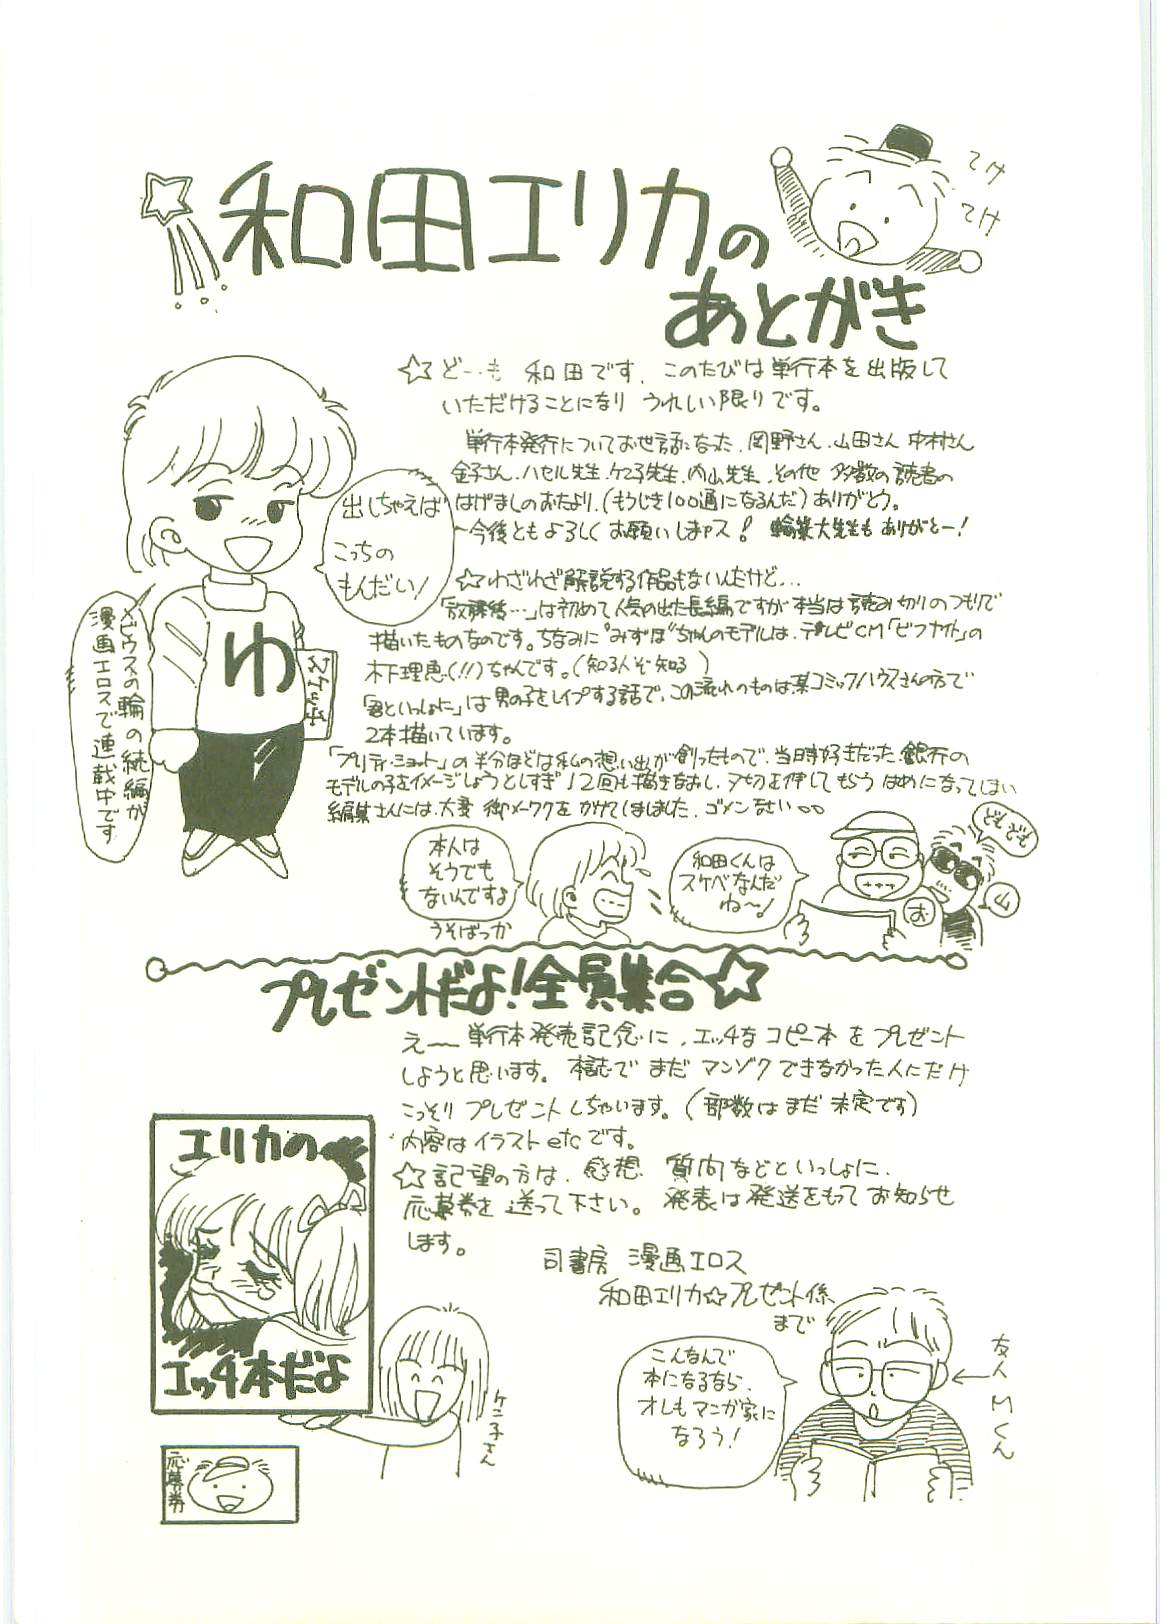 和田エリカの
あとがき
てけ
てけ
☆どーも 和田です、このたびは単行本を出版して
いただけることになり うれしい限りです。
単行本発行についてお世話になった、岡野さん、山田さん 中村さん
金子さん、ハセル先生、ケニ子先生、内山先生、その他 多数の読者の
はげましのおたより、(もうじき100通になるんだ)ありがとう。
〜今後ともよろしく お願いしまャス! 輪業大先生も ありがとー!
出しちゃえば
こっちの
もんだい!
ゆ
スケッチ
メビウスの輪の続編が
漫画エロスで連載中です
☆わざわざ解説する作品もないんだけど...
「放課後…」は初めて人気の出た長編ですが本当は読み切りのつもりで
描いたものなのです。ちなみに"みずほ"ちゃんのモデルは、テレビCM「ビフナイト」の
木下理恵(!!)ちゃんです。(知る人ぞ知る)
「君といっしょに」は男の子をレイプする話で、この流れのものは某コミックハウスさんの方で
2本描いています。
「プリティ・ショット」の半分ほどは私の想い出が創ったもので、当時好きだった銀行の
モデルの子をイメージしようとしすぎ12回も描きなおし、〆切を伸してもらうはめになってしまい
編集さんには、大変 御メーワクを かけてしまいました、ゴメンなさい
本人は
そうでも
ないんですよ
うそばっか
和田くんは
スケベなんだ
ね〜!
どもども
お
山
プレゼントだよ!全員集合☆
え〜 単行本発売記念に、エッチな コピー本 を プレゼント
しようと思います。本誌で まだ マンゾク できなかった人にだけ
こっそり プレゼントしちゃいます。(部数は まだ 未定です)
内容は イラスト etc です。
☆記望の方は、感想 質向などといっしょに、
応募券を 送って下さい。発表は発送をもって お知らせ
します。
司書房 漫画エロス
和田エリカ☆プレゼント係
まで
エリカの
エッチ本だよ
ケニ子さん
応募券
こんなんで
本になるなら、
オレもマンガ家に
なろう!
友人Mくん